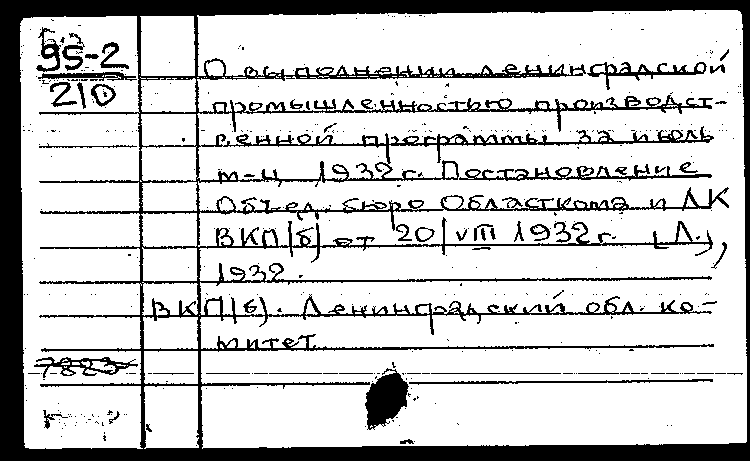 95-2
210
О выполнении ленинградской
промышленностью производст-
венной программы за июль
м-ц 1932 г. Постановление
Объед. бюро Областкома и ЛК
ВКП(б) от 20/VIII 1932 г. (Л.),
1932.
ВКП(б). Ленинградский обл. ко-
митет
7883